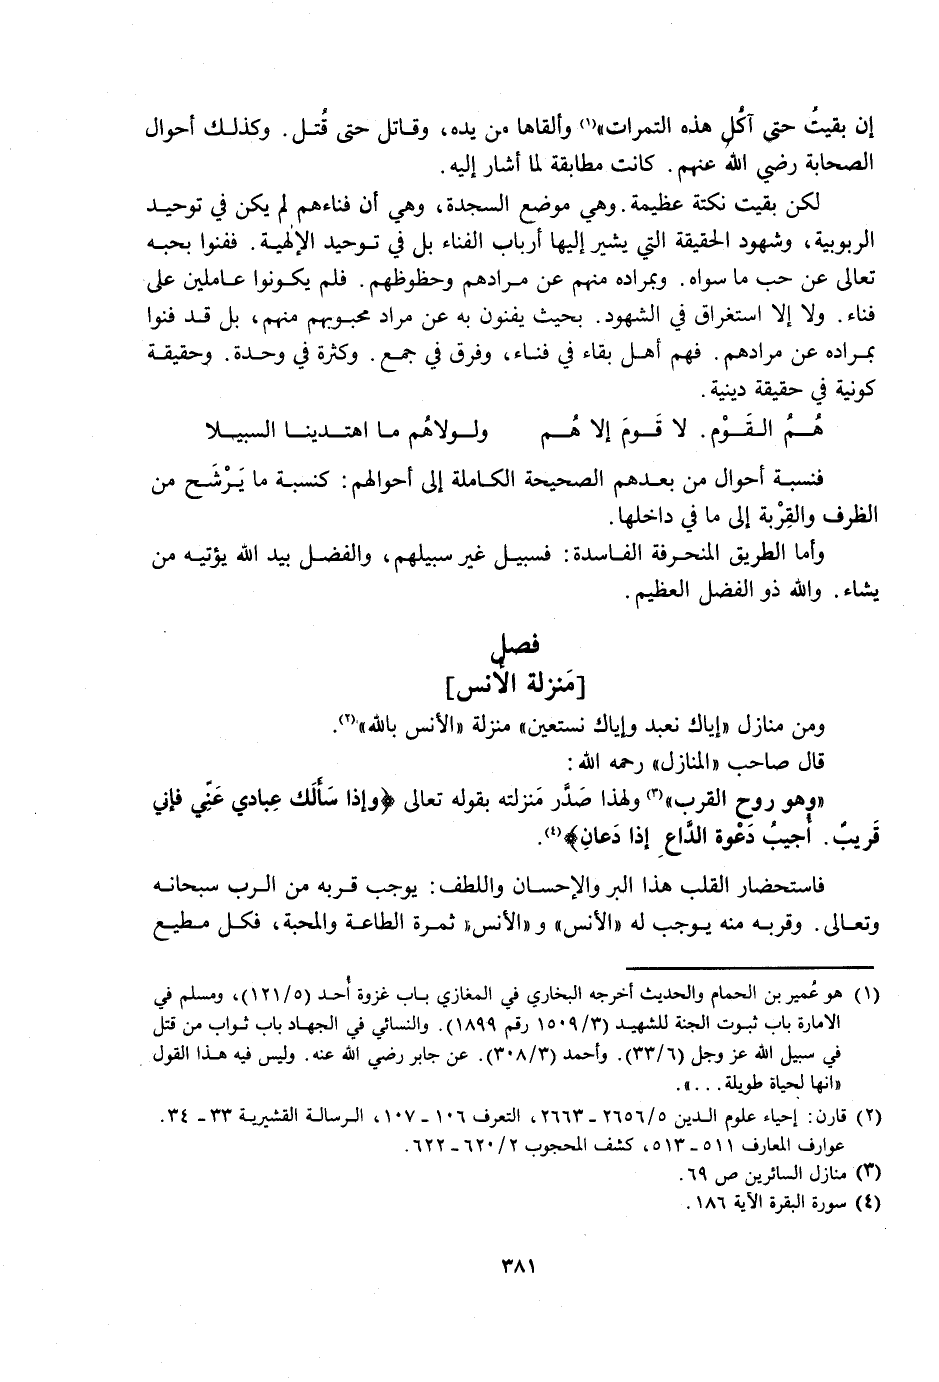 إن بقيتُ حتى آكُلِ هذه التمرات»(١) وألقاها من يده، وقاتل حتى قُتل. وكذلك أحوال
الصحابة رضي الله عنهم. كانت مطابقة لما أشار إليه.
لكن بقيت نكتة عظيمة. وهي موضع السجدة، وهي أن فناءهم لم يكن في توحيد
الربوبية، وشهود الحقيقة التي يشير إليها أرباب الفناء بل في توحيد الإلهية. ففنوا بحبه
تعالى عن حب ما سواه. وبمراده منهم عن مرادهم وحظوظهم. فلم يكونوا عاملين على
فناء. ولا إلا استغراق في الشهود. بحيث يفنون به عن مراد محبوبهم منهم، بل قد فنوا
بمراده عن مرادهم. فهم أهل بقاء في فناء، وفرق في جمع. وكثرة في وحدة. وحقيقة
كونية في حقيقة دينية.
هُمُ القَوْم. لا قَومَ إلا هُم ولولاهُم ما اهتدينا السبيلا
فنسبة أحوال من بعدهم الصحيحة الكاملة إلى أحوالهم: كنسبة ما يَرْشَح من
الظرف والقِرْبة إلى ما في داخلها.
وأما الطريق المنحرفة الفاسدة: فسبيل غير سبيلهم، والفضل بيد الله يؤتيه من
يشاء. والله ذو الفضل العظيم.
فصل
[مَنزلة الأنس]
ومن منازل «إياك نعبد وإياك نستعين» منزلة «الأنس بالله»(٢).
قال صاحب «المنازل» رحمه الله:
«وهو روح القرب»(٣) ولهذا صَدَّر مَنزلته بقوله تعالى ﴿وإذا سَأَلَك عِبادي عَنِّي فإني
قَريبٌ. أُجيبُ دَعْوة الدَّاعِ إذا دَعانِ﴾(٤).
فاستحضار القلب هذا البر والإحسان واللطف: يوجب قربه من الرب سبحانه
وتعالى. وقربه منه يوجب له «الأنس» و «الأنس» ثمرة الطاعة والمحبة، فكل مطيع
(١) هو عُمير بن الحمام والحديث أخرجه البخاري في المغازي باب غزوة أُحد (١٢١/٥)، ومسلم في
الامارة باب ثبوت الجنة للشهيد (١٥٠٩/٣ رقم ١٨٩٩). والنسائي في الجهاد باب ثواب من قتل
في سبيل الله عز وجل (٣٣/٦). وأحمد (٣٠٨/٣). عن جابر رضي الله عنه. وليس فيه هذا القول
«انها لحياة طويلة...».
(٢) قارن: إحياء علوم الدين ٢٦٥٦/٥ ـ ٢٦٦٣، التعرف ١٠٦ ـ ١٠٧، الرسالة القشيرية ٣٣ ـ ٣٤.
عوارف المعارف ٥١١ ـ ٥١٣، كشف المحجوب ٦٢٠/٢ ـ ٦٢٢.
(٣) منازل السائرين ص ٦٩.
(٤) سورة البقرة الآية ١٨٦.
٣٨١